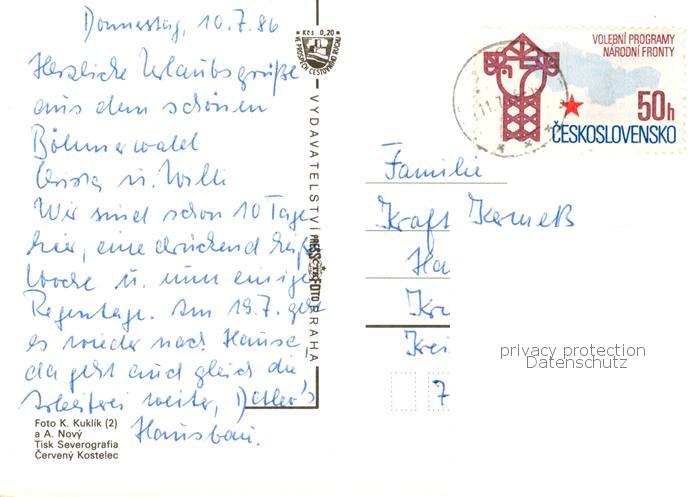 Donnerstag, 10.7.86
Herzliche Urlaubsgrüße
aus dem schönen
Böhmerwald
u. Willi
Wir sind schon 10 Tage
hier, eine drückend heiße
Woche u. nun einige
Regentage. Am 19.7. geht
es wieder nach Hause,
da geht auch gleich die
Arbeiterei weiter, Detlef's
Hausbau.
Foto K. Kuklík (2)
a A. Nový
Tisk Severografia
Červený Kostelec
Kčs 0,20
VE PROSPĚCH CESTOVNÍHO RUCHU
VYDAVATELSTVÍ PRESSFOTO PRAHA
VOLEBNÍ PROGRAMY
NÁRODNÍ FRONTY
50h
ČESKOSLOVENSKO
Familie
Kraft
Ha
Kr
Krei
7
privacy protection
Datenschutz